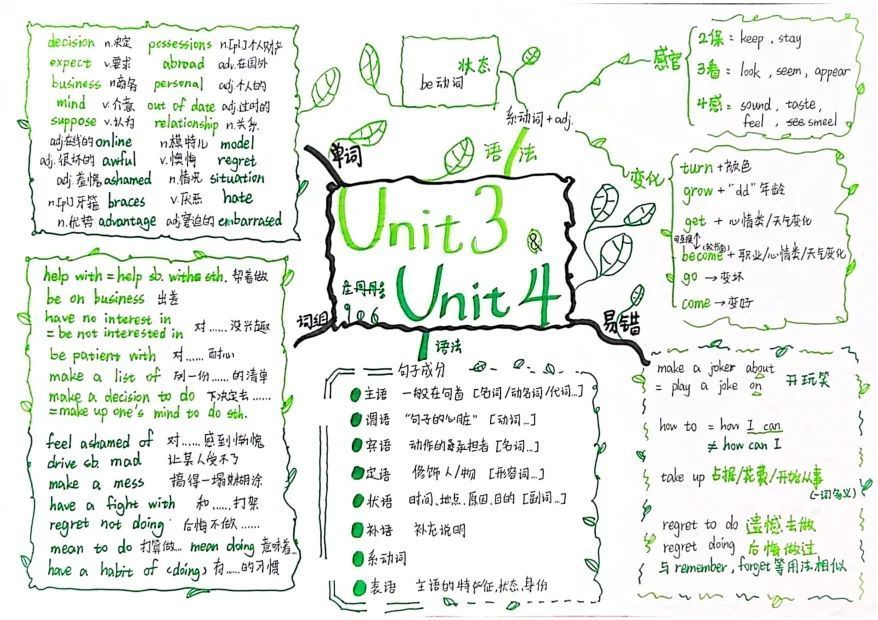 decision n.决定 possessions n.[pl]个人财产
expect v.要求 abroad adv.在国外
business n.商务 personal adj.个人的
mind v.介意 out of date adj.过时的
suppose v.认为 relationship n.关系
adj.在线的 online n.模特儿 model
adj.很坏的 awful v.懊悔 regret
adj.羞愧 ashamed n.情况 situation
n.[pl]牙箍 braces v.厌恶 hate
n.优势 advantage adj.窘迫的 embarrased
单词
状态
be动词
系动词+adj.
语法
感官
2保: keep , stay
3看: look , seem , appear
4感: sound , taste ,
feel , smeel
变化
turn+颜色
grow+"dd"年龄
get + 心情类/天气变化
become + 职业/心情类/天气变化
go → 变坏
come → 变好
Unit 3
&
Unit 4
906
词组
help with = help sb. with sth. 帮着做
be on business 出差
have no interest in
= be not interested in 对……没兴趣
be patient with 对……耐心
make a list of 列一份……的清单
make a decision to do 下决定去……
=make up one's mind to do sth.
feel ashamed of 对……感到惭愧
drive sb. mad 让某人受不了
make a mess 搞得一塌糊涂
have a fight with 和……打架
regret not doing 后悔不做……
mean to do 打算做… mean doing 意味着…
have a habit of (doing) 有……的习惯
语法
句子成分
主语 一般在句首 [名词/动名词/代词…]
谓语 "句子的心脏" [动词…]
宾语 动作的承担者 [名词…]
定语 修饰人/物 [形容词…]
状语 时间、地点、原因、目的 [副词…]
补语 补充说明
系动词
表语 主语的特征,状态,身份
易错
make a joker about
= play a joke on 开玩笑
how to = how I can
≠ how can I
take up 占据/花费/开始从事
(一词多义)
regret to do 遗憾去做
regret doing 后悔做过
与remember, forget等用法相似